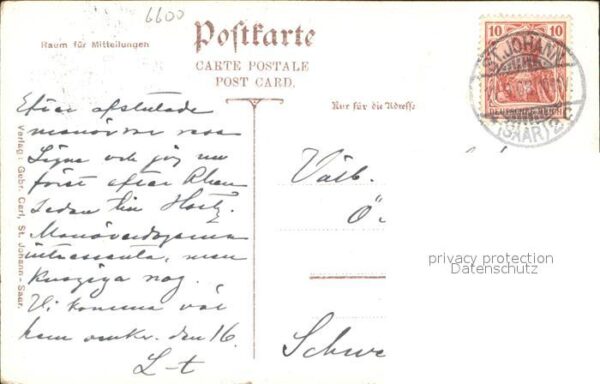 6600
Raum für Mitteilungen
Postkarte
CARTE POSTALE
POST CARD.
Nur für die Adresse
10 10
DEUTSCHES REICH
ST. JOHANN
(SAAR) 2
Efter afslutade
manövrer resa
Signe och jag nu
först efter Rhen
sedan till Hartz.
Manöverdagarna
intressanta, men
krigiga nog.
Vi komma väl
hem omkr. den 16.
L-t
Välb.
Ö
Schwe
Verlag: Gebr. Carl, St. Johann-Saar.
privacy protection
Datenschutz